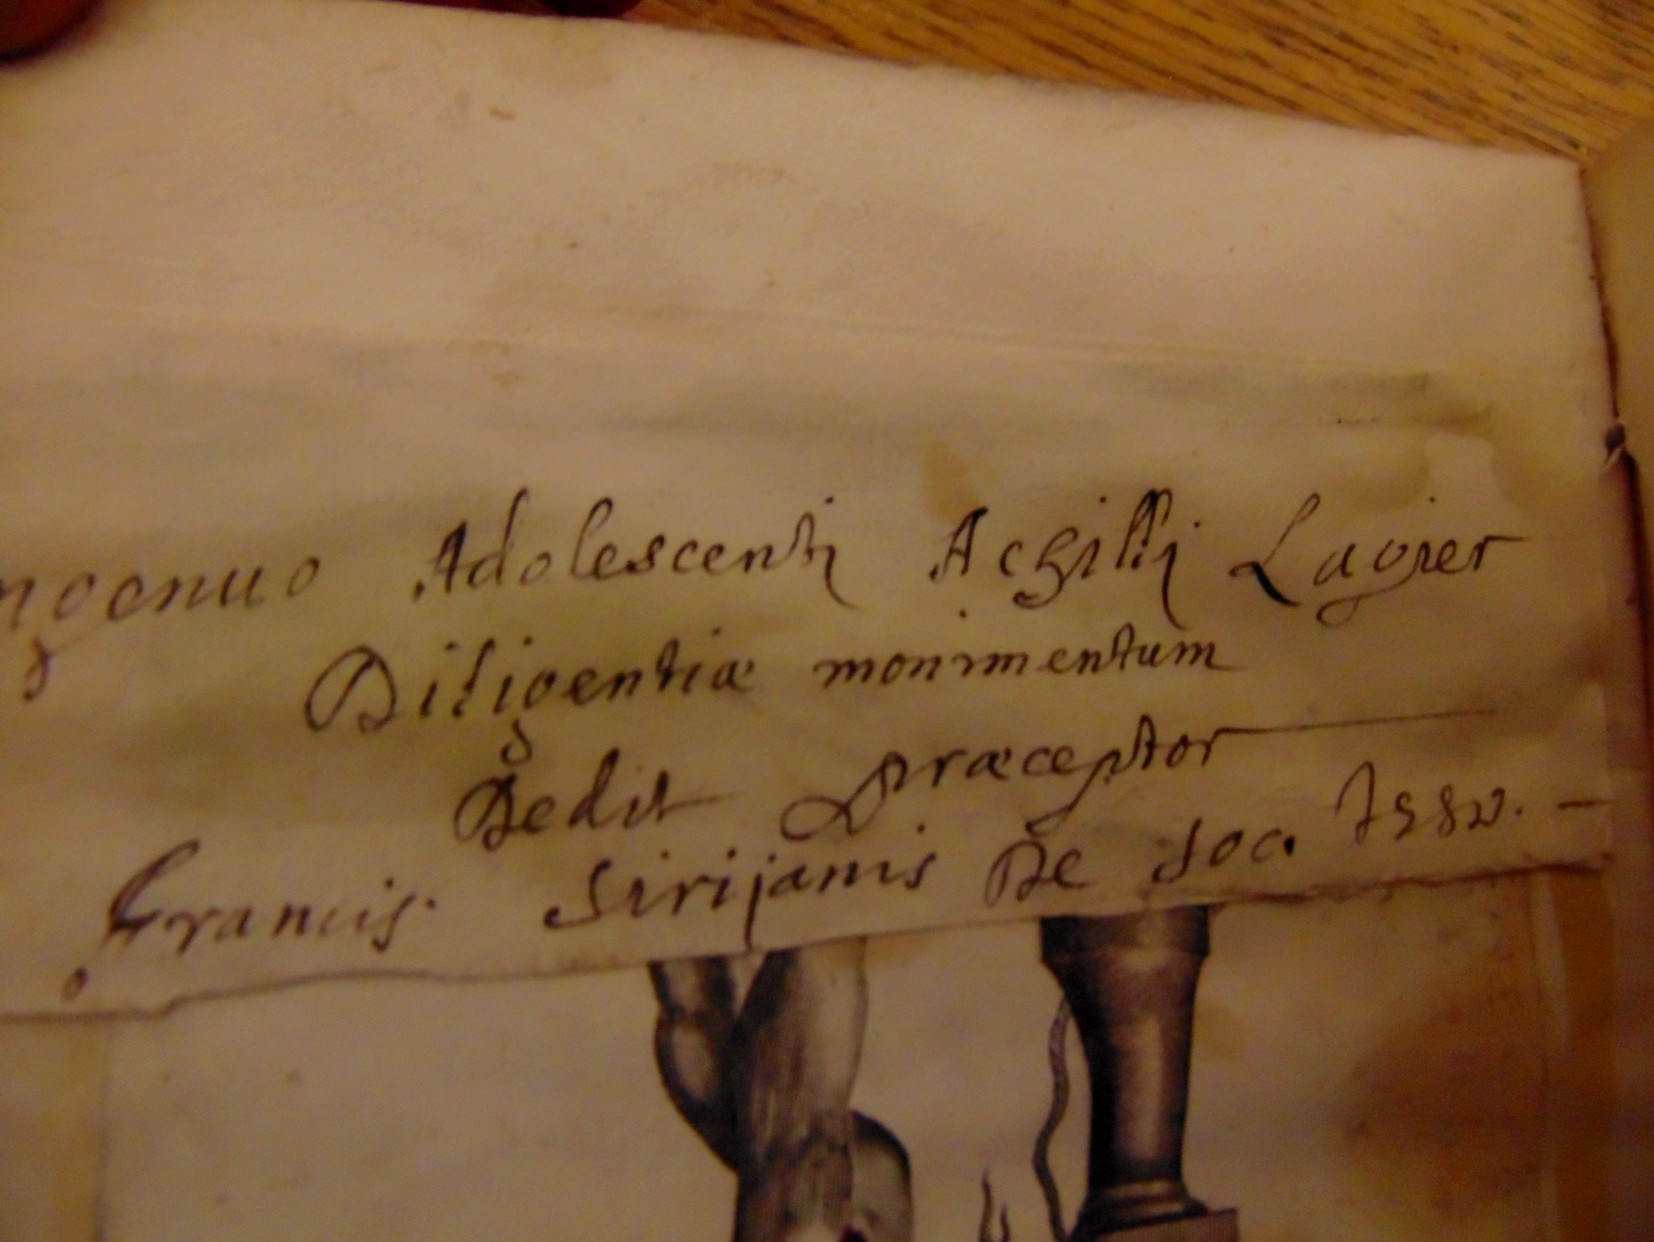 ngenuo Adolescenti Achilli Lagier
Diligentiæ monimentum
Dedit Præceptor
Francis. Sirijanis De Soc. Jesu.